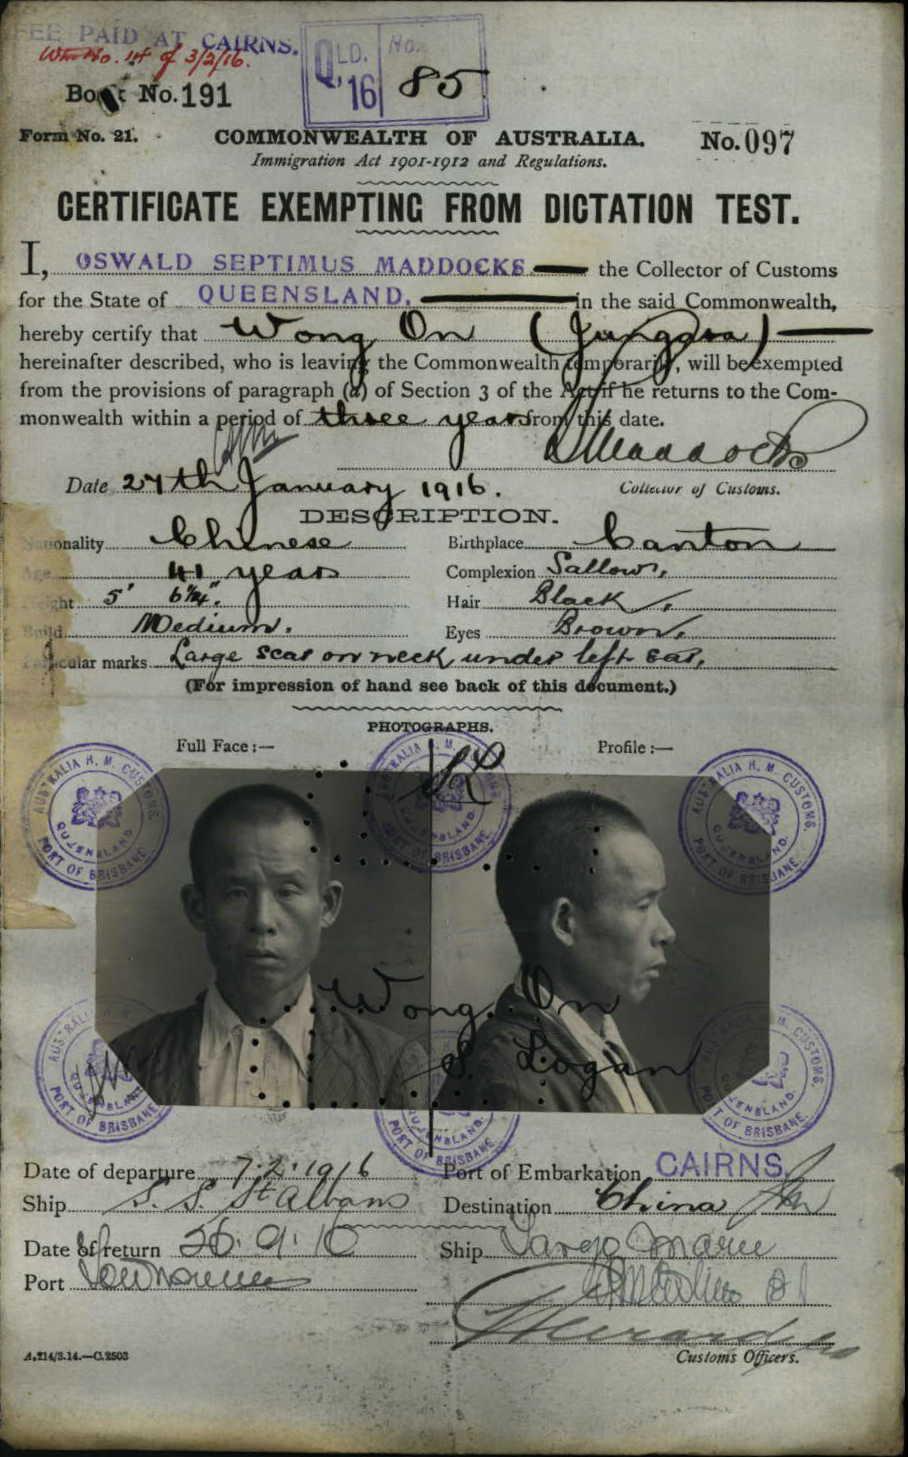 FEE PAID AT CAIRNS.
of 3/2/16.
QLD. '16 No. 85
Book No. 191
Form No. 21.
COMMONWEALTH OF AUSTRALIA.
No. 097
Immigration Act 1901-1912 and Regulations.
CERTIFICATE EXEMPTING FROM DICTATION TEST.
I, OSWALD SEPTIMUS MADDOCKS the Collector of Customs
for the State of QUEENSLAND, in the said Commonwealth,
hereby certify that Wong On
hereinafter described, who is leaving the Commonwealth temporarily, will be exempted
from the provisions of paragraph (a) of Section 3 of the Act if he returns to the Com-
monwealth within a period of three years from this date.
Maddocks
Date 27th January 1916.
Collector of Customs.
DESCRIPTION.
Nationality Chinese Birthplace Canton
Age 41 years Complexion Sallow.
Height 5' 6¼". Hair Black.
Build Medium. Eyes Brown.
Particular marks Large scar on neck under left ear.
(For impression of hand see back of this document.)
PHOTOGRAPHS.
Full Face:—
Profile:—
AUSTRALIA H. M. CUSTOMS. QUEENSLAND. PORT OF BRISBANE
AUSTRALIA H. M. QUEENSLAND. PORT OF BRISBANE
AUSTRALIA H. M. CUSTOMS. QUEENSLAND. PORT OF BRISBANE
Wong On
S. Logan
AUSTRALIA QUEENSLAND. PORT OF BRISBANE
PORT OF BRISBANE
H. M. CUSTOMS. QUEENSLAND. PORT OF BRISBANE
Date of departure 7.2.1916 Port of Embarkation CAIRNS.
Ship S. S. St Albans Destination China
Date of return Ship Maru
Port
Customs Officers.
A.214/3.14.—C.2503